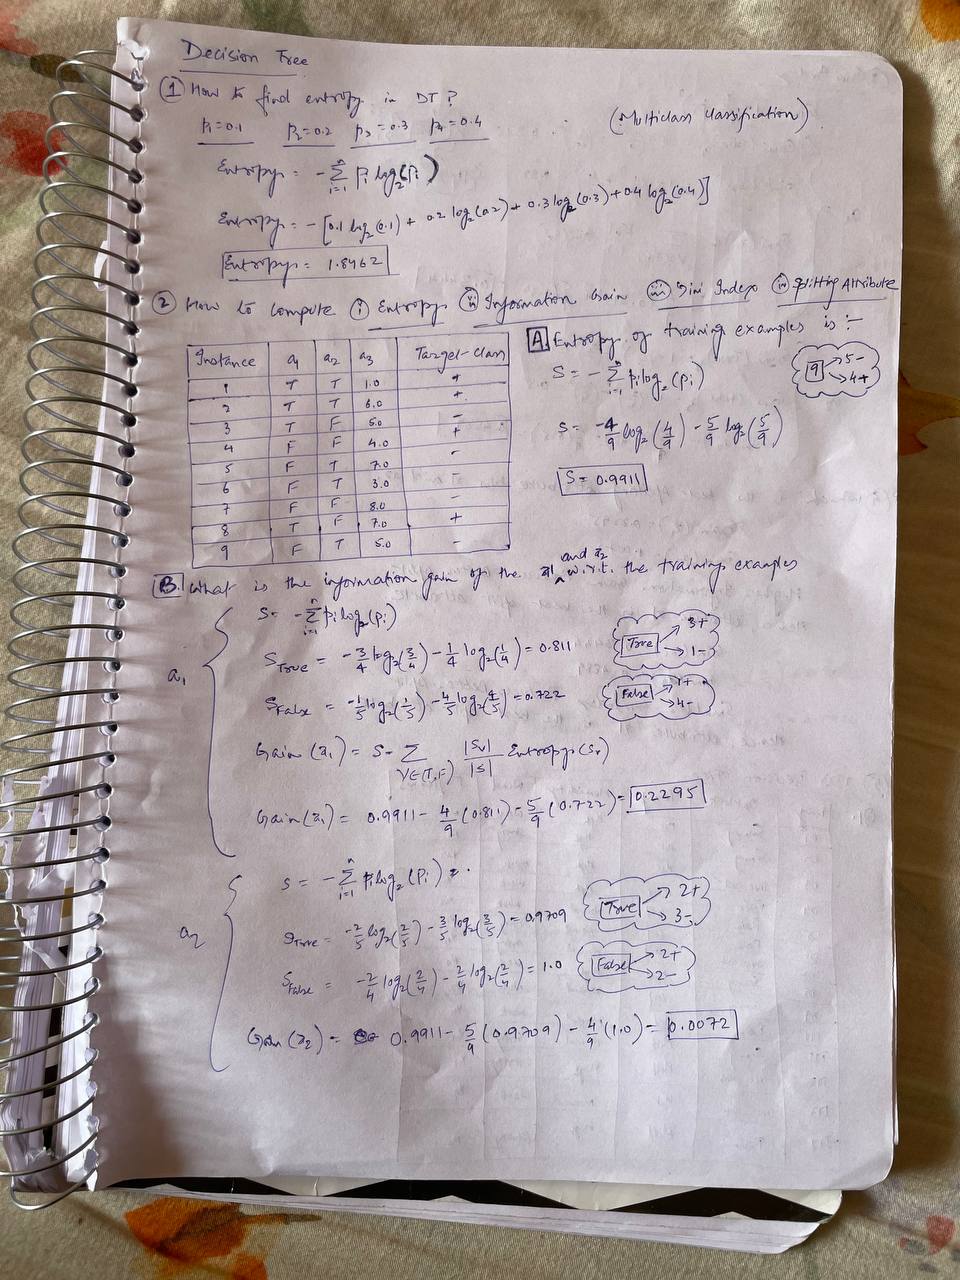 Decision Tree
① How to find entropy in DT?
P₁=0.1 P₂=0.2 P₃=0.3 P₄=0.4 (Multiclass classification)
Entropy = -Σⁿᵢ₌₁ Pᵢ log₂(Pᵢ)
Entropy = -[0.1 log₂(0.1) + 0.2 log₂(0.2) + 0.3 log₂(0.3) + 0.4 log₂(0.4)]
Entropy = 1.8462
② How to compute ⓘ Entropy ⓘⓘ Information Gain ⓘⓘⓘ Gini Index ⓘⓥ Splitting Attribute
Instance a₁ a₂ a₃ Target-class
1 T T 1.0 +
2 T T 6.0 +
3 T F 5.0 -
4 F F 4.0 +
5 F T 7.0 -
6 F T 3.0 -
7 F F 8.0 -
8 T F 7.0 +
9 F T 5.0 -
A Entropy of training examples is :-
S = -Σⁿᵢ₌₁ Pᵢ log₂(Pᵢ)
9 → 5-
→ 4+
S = -4/9 log₂(4/9) - 5/9 log₂(5/9)
S = 0.9911
B. What is the information gain of the a1 and a2 w.r.t. the training examples
a₁
S = -Σⁿᵢ₌₁ Pᵢ log₂(Pᵢ)
S_True = -3/4 log₂(3/4) - 1/4 log₂(1/4) = 0.811
True → 3+
→ 1-
S_False = -1/5 log₂(1/5) - 4/5 log₂(4/5) = 0.722
False → 1+
→ 4-
Gain (a₁) = S - Σ_V∈(T,F) |Sv|/|S| Entropy(Sv)
Gain (a₁) = 0.9911 - 4/9 (0.811) - 5/9 (0.722) = 0.2295
a₂
S = -Σⁿᵢ₌₁ Pᵢ log₂(Pᵢ)
S_True = -2/5 log₂(2/5) - 3/5 log₂(3/5) = 0.9709
True → 2+
→ 3-
S_False = -2/4 log₂(2/4) - 2/4 log₂(2/4) = 1.0
False → 2+
→ 2-
Gain (a₂) = 0.9911 - 5/9 (0.9709) - 4/9 (1.0) = 0.0072